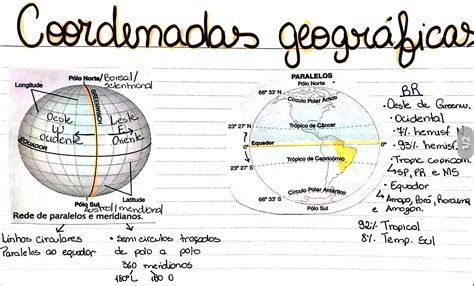 Coordenadas geográficas
Pólo Norte/Boreal/
Setentrional
Longitude
GREENWICH
Oeste
W
Ocidente
Leste
E
Oriente
EQUADOR
Latitude
Pólo Sul
Austral/meridional
Rede de paralelos e meridianos.
Linhas circulares
Paralelas ao equador
• semi circulos traçados
de polo a polo
360 meridianos
180° L 180 O
PARALELOS
Pólo Norte
66° 33' N
Círculo Polar Ártico
23° 27' N
Trópico de Câncer
Equador
0°
0°
23° 27' S
Trópico de Capricórnio
66° 33' S
Círculo Polar Antártico
Pólo Sul
BR
• Oeste de Greenw.
• Ocidental
• 7% hemisf.
• 93% hemisf.
• Tropic capricorn.
SP, PR e MS
• Equador
Amapa, Pará, Roraima
e Amazon.
92% Tropical
8% Temp. Sul
1/2